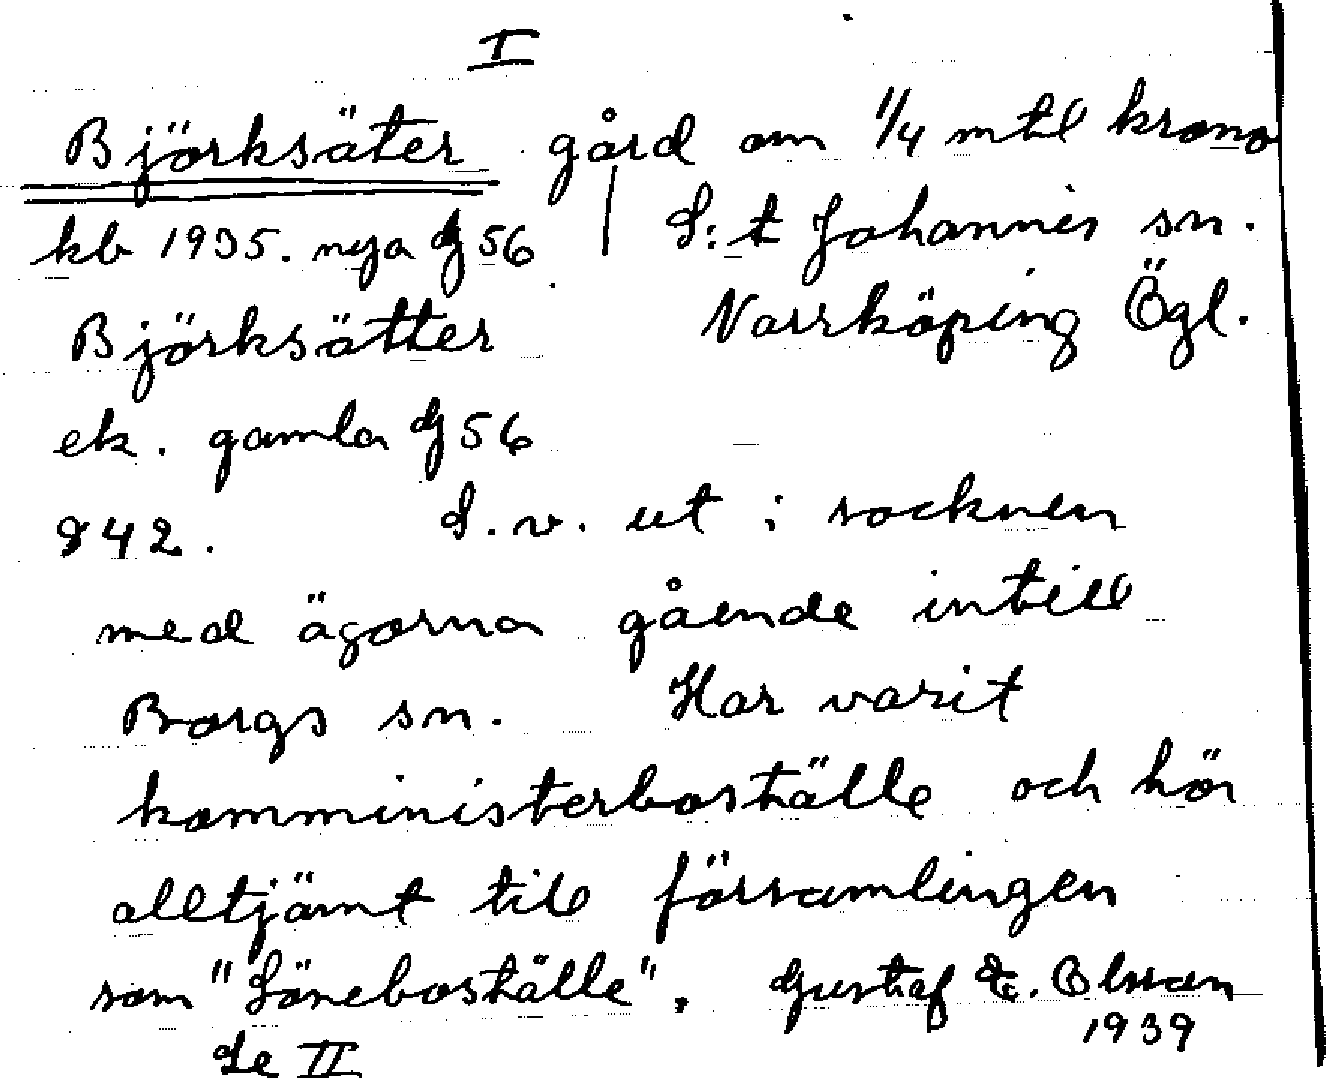 I
Björksäter gård om 1/4 mtl krono
kb 1935. nya G 56 S:t Johannis sn.
Björksätter Norrköping Ögl.
ek. gamla G 56
842. S.v. ut i socknen
med ägorna gående intill
Borgs sn. Har varit
komministerboställe och hör
alltjämt till församlingen
som "Löneboställe". Gustaf E. Olsson
1939
Se II